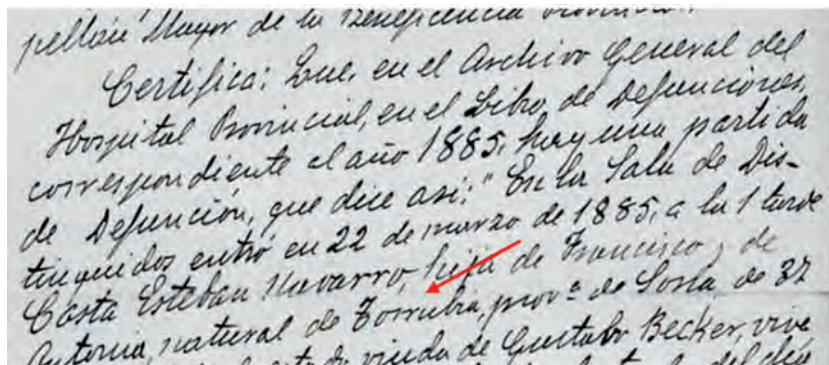 pellán Mayor de la Beneficencia
Certifica: Que, en el Archivo General del
Hospital Provincial, en el Libro de Defunciones,
correspondiente al año 1885, hay una partida
de Defunción, que dice asi: "En la Sala de Dis-
tinguidos entró en 22 de marzo de 1885, a la 1 tarde
Casta Esteban Navarro, hija de Francisco y de
Antonia, natural de Torrubia, provª de Soria, de 37
viuda de Gustabo Becker, vive
del dia